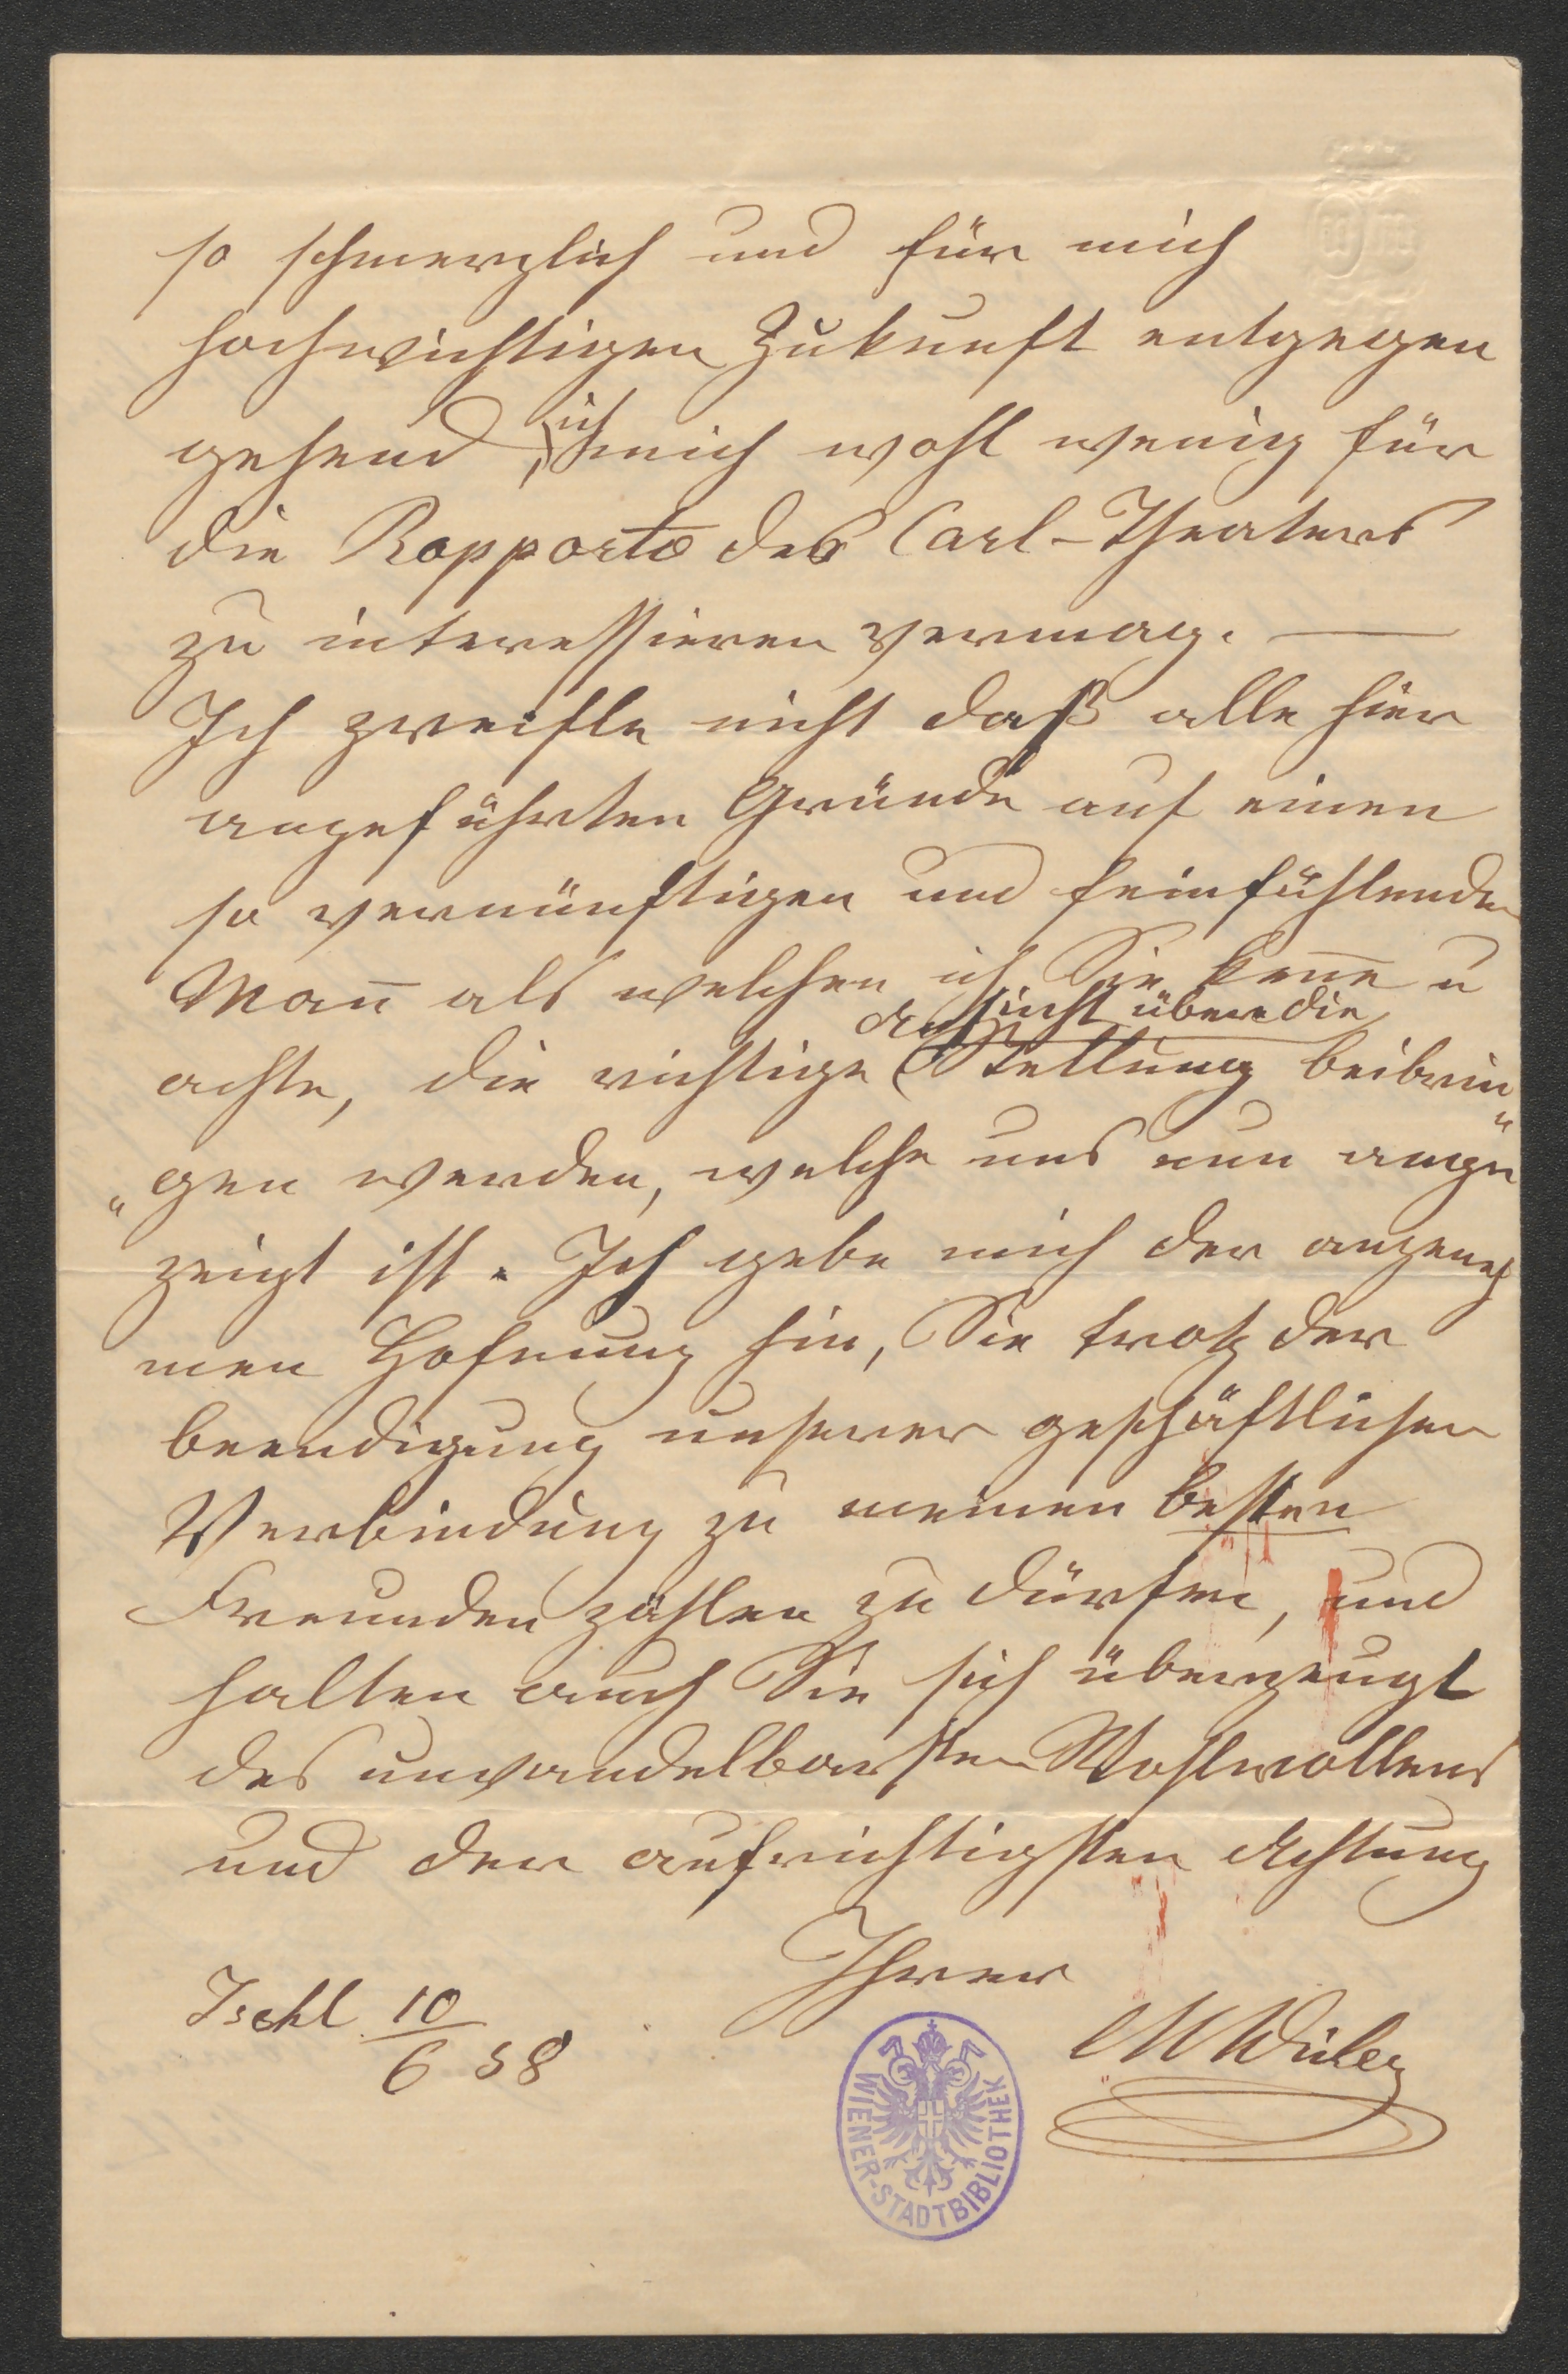 so schmerzlich und für mich
hochwichtigen Zukunft entgegen
gehend, ich mich wohl wenig für
die Rapporte des Carl-Theaters
zu interessieren vermag. —
Ich zweifle nicht daß alle hier
angeführten Gründe auf einen
so vernünftigen und feinfühlenden
Mañ als welchen ich Sie keñe u
achte, die richtige Ansicht über die Stellung beibrin„
„gen werden, welche uns nun ange
zeigt ist. Ich gebe mich der angeneh
men Hofnung hin, Sie trotz der
beendigung unserer geschäftlichen
Verbindung zu meinen besten
Freunden zählen zu dürfen, und
halten auch Sie sich überzeugt
des unwandelbarsten Wohlwollens
und der aufrichtigsten Achtung
Ihrer
Ischl 10/6 58
WIENER-STADTBIBLIOTHEK